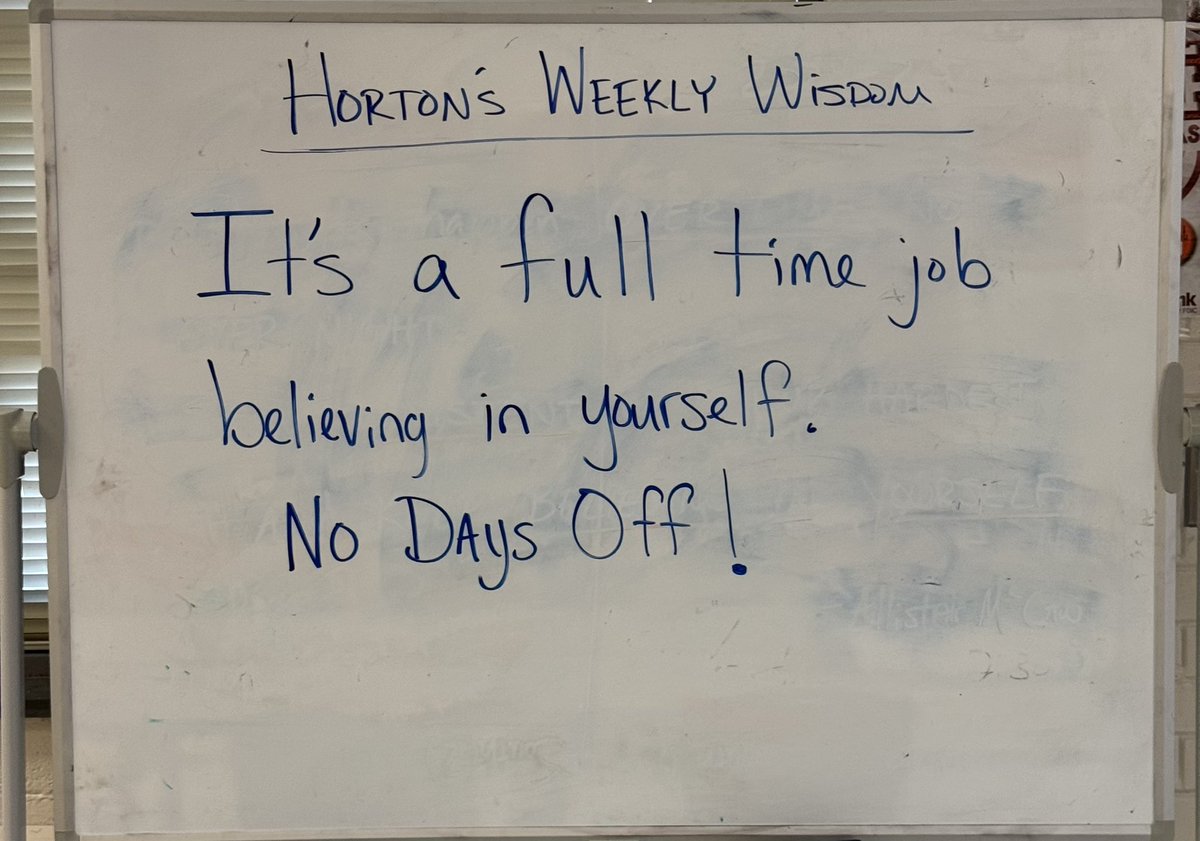 HORTON'S WEEKLY WISDOM
It's a full time job
believing in yourself.
NO DAYS OFF!